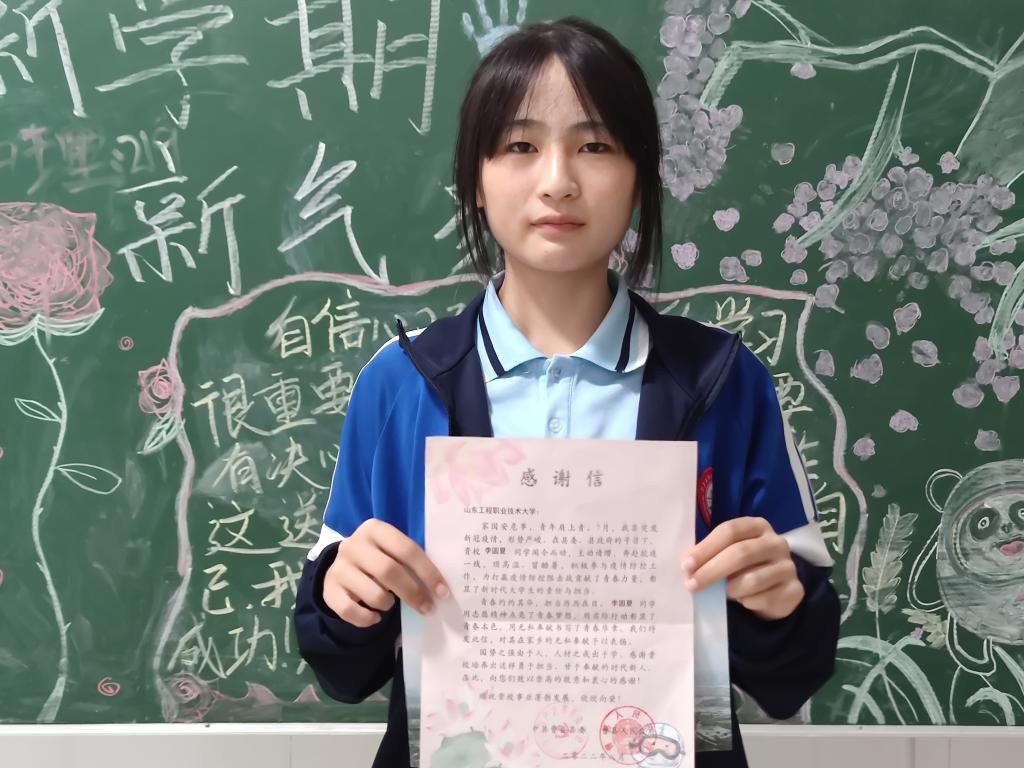 新学期
新气
自信心
学习
很重要
要
有决心
这送
自
己.我
成功!!
感谢信
山东工程职业技术大学:
家国安危事,青年肩上责。7月,我县突发
新冠疫情,形势严峻。在县委、县政府的号召下,
贵校 李圆夏 同学闻令而动,主动请缨,奔赴抗疫
一线,顶高温、冒酷暑,积极参与疫情防控工
作,为打赢疫情防控阻击战贡献了青春力量,彰
显了新时代大学生的责任与担当。
青春灼灼其华,担当历历在目。李圆夏 同学
用志愿精神点亮了青春梦想,用实际行动彰显了
青春本色,用无私奉献书写了青春华章。我们特
发此信,对其在家乡的无私奉献予以表扬。
国势之强由于人,人材之成出于学。感谢贵
校培养出这样勇于担当、甘于奉献的时代新人。
在此,向您们致以崇高的敬意和衷心的感谢!
顺祝贵校事业蓬勃发展、欣欣向荣!
中共曹县县委 曹县人民
二〇二二年八月